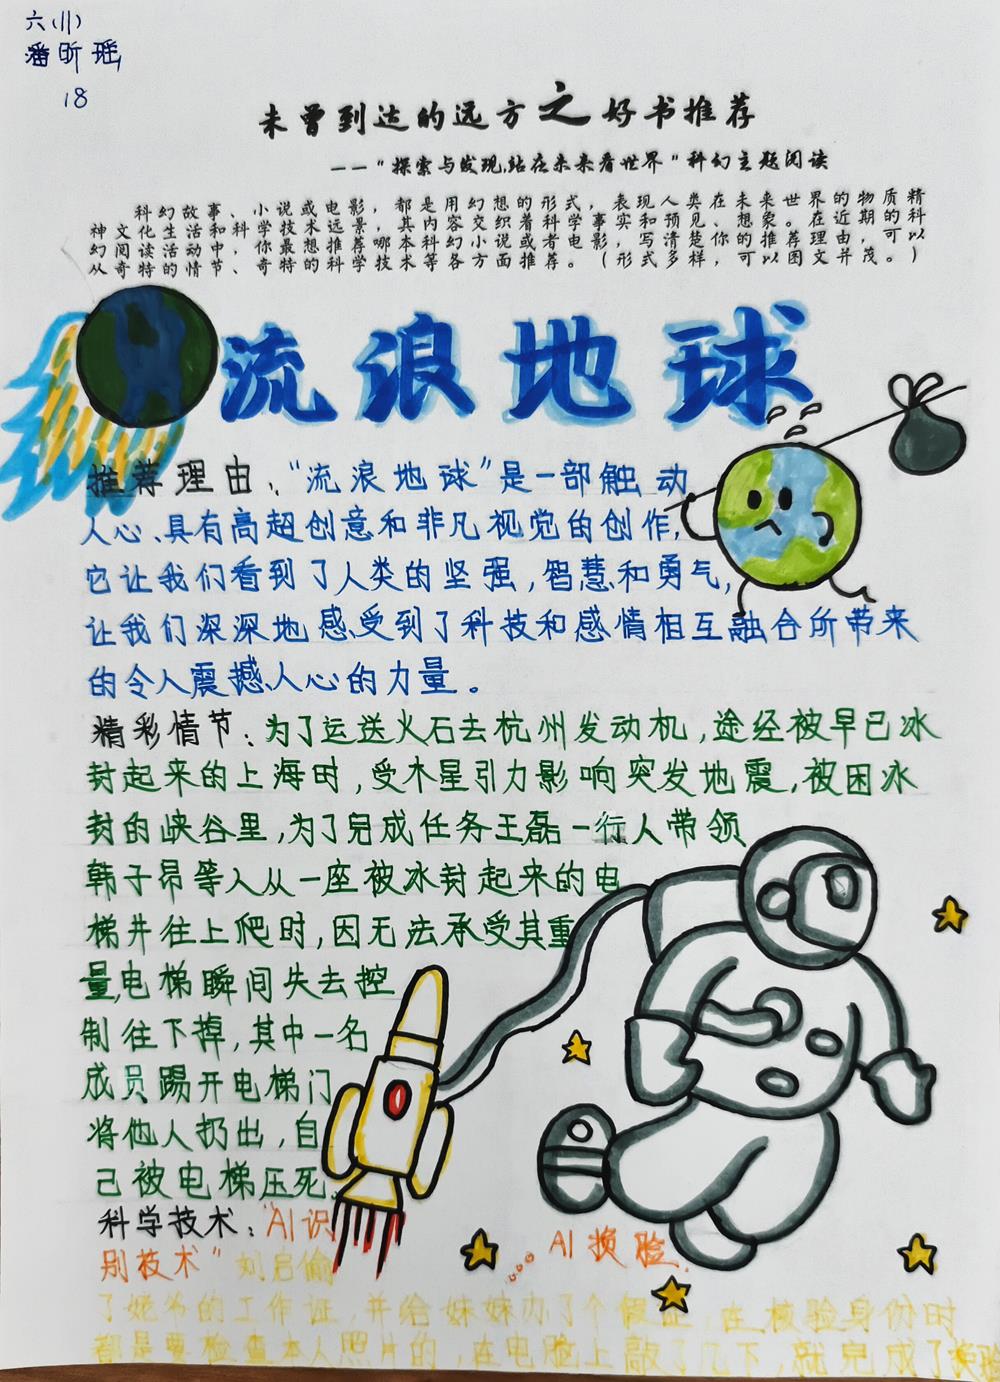 六(11)
潘昕瑶
18
未曾到达的远方之好书推荐
——“探索与发现,站在未来看世界”科幻主题阅读
科幻故事、小说或电影，都是用幻想的形式，表现人类在未来世界的物质精
神文化生活和科学技术远景，其内容交织着科学事实和预见、想象。在近期的科
幻阅读活动中，你最想推荐哪本科幻小说或者电影，写清楚你的推荐理由，可以
从奇特的情节、奇特的科学技术等各方面推荐。（形式多样，可以图文并茂。）
流浪地球
推荐理由:“流浪地球”是一部触动
人心、具有高超创意和非凡视觉的创作,
它让我们看到了人类的坚强,智慧和勇气,
让我们深深地感受到了科技和感情相互融合所带来
的令人震撼人心的力量。
精彩情节:为了运送火石去杭州发动机,途经被早已冰
封起来的上海时,受木星引力影响突发地震,被困冰
封的峡谷里,为了完成任务王磊一行人带领
韩子昂等人从一座被冰封起来的电
梯井往上爬时,因无法承受其重
量,电梯瞬间失去控
制往下掉,其中一名
成员踢开电梯门
将他人扔出,自
己被电梯压死。
科学技术:“AI识
别技术”刘启偷
...AI换脸.
了姥爷的工作证,并给妹妹办了个假证,在核验身份时
都是要检查本人照片的,在电脑上敲了几下,就完成了换脸